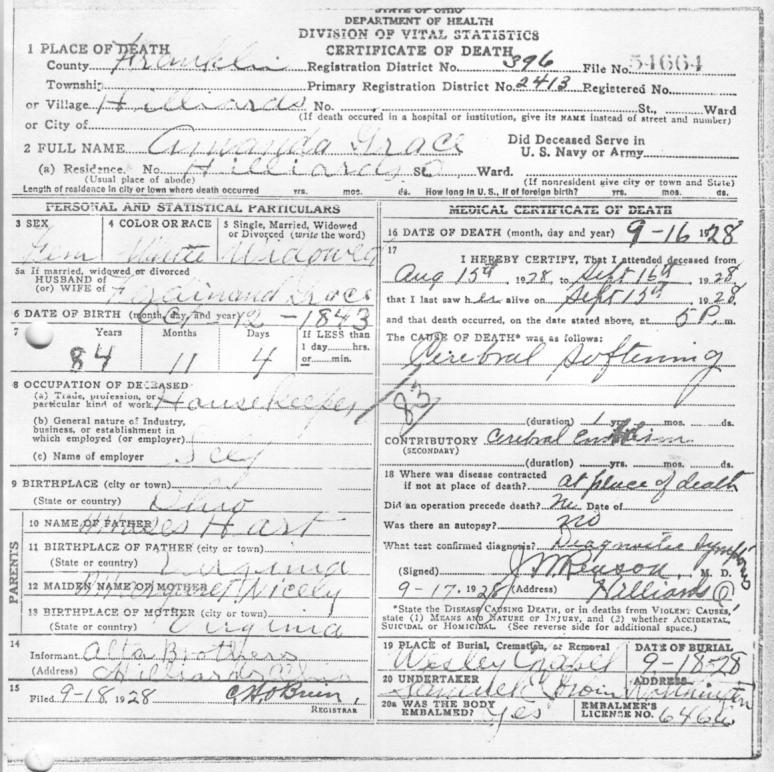 STATE OF OHIO
DEPARTMENT OF HEALTH
DIVISION OF VITAL STATISTICS
CERTIFICATE OF DEATH
1 PLACE OF DEATH
County Franklin Registration District No. 396 File No. 54664
Township Primary Registration District No. 2413 Registered No.
or Village Hilliards No. St., Ward
(If death occured in a hospital or institution, give its NAME instead of street and number)
or City of
2 FULL NAME Amanda Grace Did Deceased Serve in
U. S. Navy or Army
(a) Residence. No. Hilliards O St. Ward.
(Usual place of abode) (If nonresident give city or town and State)
Length of residence in city or town where death occurred yrs. mos. ds. How long in U. S., if of foreign birth? yrs. mos. ds.
PERSONAL AND STATISTICAL PARTICULARS
3 SEX 4 COLOR OR RACE 5 Single, Married, Widowed
or Divorced (write the word)
Fem White Widowed
5a If married, widowed or divorced
HUSBAND of
(or) WIFE of Ferdinand Grace
6 DATE OF BIRTH (month, day, and year) Oct - 12 - 1843
7 Years Months Days If LESS than
1 day......hrs.
or......min.
84 11 4
8 OCCUPATION OF DECEASED
(a) Trade, profession, or
particular kind of work Housekeeper
(b) General nature of Industry,
business, or establishment in
which employed (or employer)
(c) Name of employer Self
9 BIRTHPLACE (city or town)
(State or country) Ohio
PARENTS
10 NAME OF FATHER Moses Hart
11 BIRTHPLACE OF FATHER (city or town)
(State or country) Virginia
12 MAIDEN NAME OF MOTHER Margaret Nicely
13 BIRTHPLACE OF MOTHER (city or town)
(State or country) Virginia
14
Informant Alta Brothers
(Address) Hilliards Ohio
15
Filed 9-18, 1928 C.H. O'Brien,
REGISTRAR
MEDICAL CERTIFICATE OF DEATH
16 DATE OF DEATH (month, day and year) 9-16 1928
17
I HEREBY CERTIFY, That I attended deceased from
Aug 15th, 1928, to Sept 16th, 1928
that I last saw her alive on Sept 15th, 1928,
and that death occurred, on the date stated above, at 5 P. m.
The CAUSE OF DEATH* was as follows:
Cerebral Softening
83
(duration) 1 yrs. mos. ds.
CONTRIBUTORY Cerebral Embolism
(SECONDARY)
(duration) yrs. mos. ds.
18 Where was disease contracted
if not at place of death? at place of death
Did an operation precede death? No Date of
Was there an autopsy? no
What test confirmed diagnosis? Diagnostic Symptoms
(Signed) M. D.
9-17, 1928 (Address) Hilliards O.
*State the DISEASE CAUSING DEATH, or in deaths from VIOLENT CAUSES,
state (1) MEANS AND NATURE OF INJURY, and (2) whether ACCIDENTAL,
SUICIDAL or HOMICIDAL. (See reverse side for additional space.)
19 PLACE of Burial, Cremation, or Removal DATE OF BURIAL
Wesley Chapel 9-18-28
20 UNDERTAKER ADDRESS
Worthington
20a WAS THE BODY
EMBALMED? Yes EMBALMER'S
LICENSE NO. 646